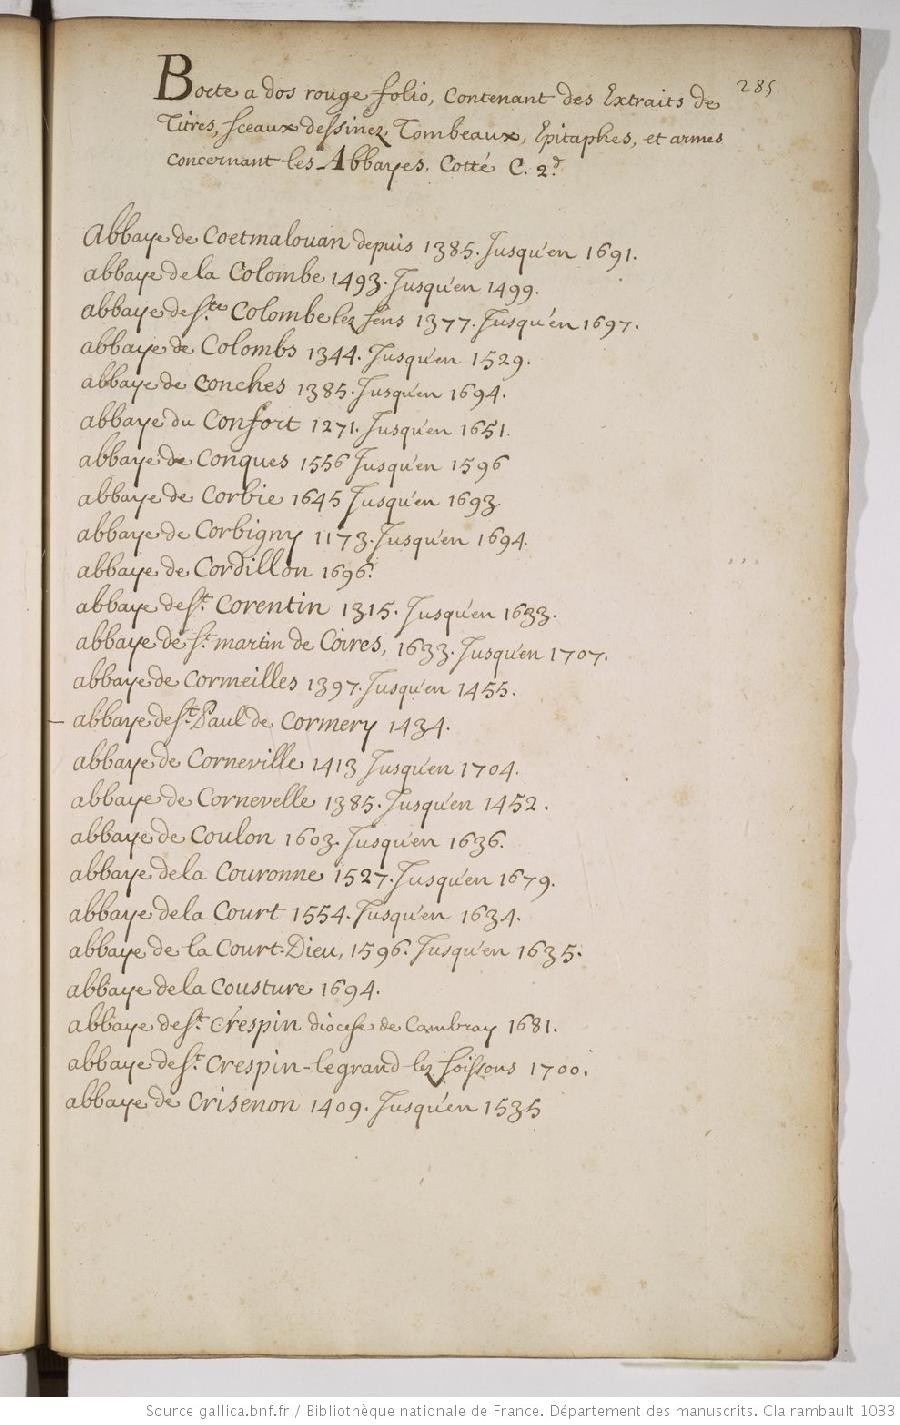 285
Boete a dos rouge folio, Contenant des Extraits de
Titres, Sceaux dessinez, Tombeaux, Epitaphes, et armes
concernant les Abbayes. Cotté C. 2d.
Abbaye de Coetmalouan depuis 1385. Jusqu'en 1691.
abbaye de la Colombe 1493. Jusqu'en 1499.
abbaye de Ste Colombe lez Sens 1377. Jusqu'en 1697.
abbaye de Colombs 1344. Jusqu'en 1529.
abbaye de Conches 1385. Jusqu'en 1694.
abbaye du Confort 1271. Jusqu'en 1651.
abbaye de Conques 1556 Jusqu'en 1596
abbaye de Corbie 1645 Jusqu'en 1693
abbaye de Corbigny 1173. Jusqu'en 1694.
abbaye de Cordillon 1696.
abbaye de St. Corentin 1315. Jusqu'en 1633.
abbaye de St. martin de Coires, 1633. Jusqu'en 1707.
abbaye de Cormeilles 1397. Jusqu'en 1455.
abbaye de St. Paul de Cormery 1434.
abbaye de Corneville 1413 Jusqu'en 1704.
abbaye de Cornevelle 1385. Jusqu'en 1452.
abbaye de Coulon 1603. Jusqu'en 1636.
abbaye de la Couronne 1527. Jusqu'en 1679.
abbaye de la Court 1554. Jusqu'en 1634.
abbaye de la Court-Dieu, 1596. Jusqu'en 1635.
abbaye de la Cousture 1694.
abbaye de St. Crespin diocese de Cambray 1681.
abbaye de St. Crespin-le grand lez Soissons 1700.
abbaye de Crisenon 1409. Jusqu'en 1535
Source gallica.bnf.fr / Bibliothèque nationale de France. Département des manuscrits. Clairambault 1033